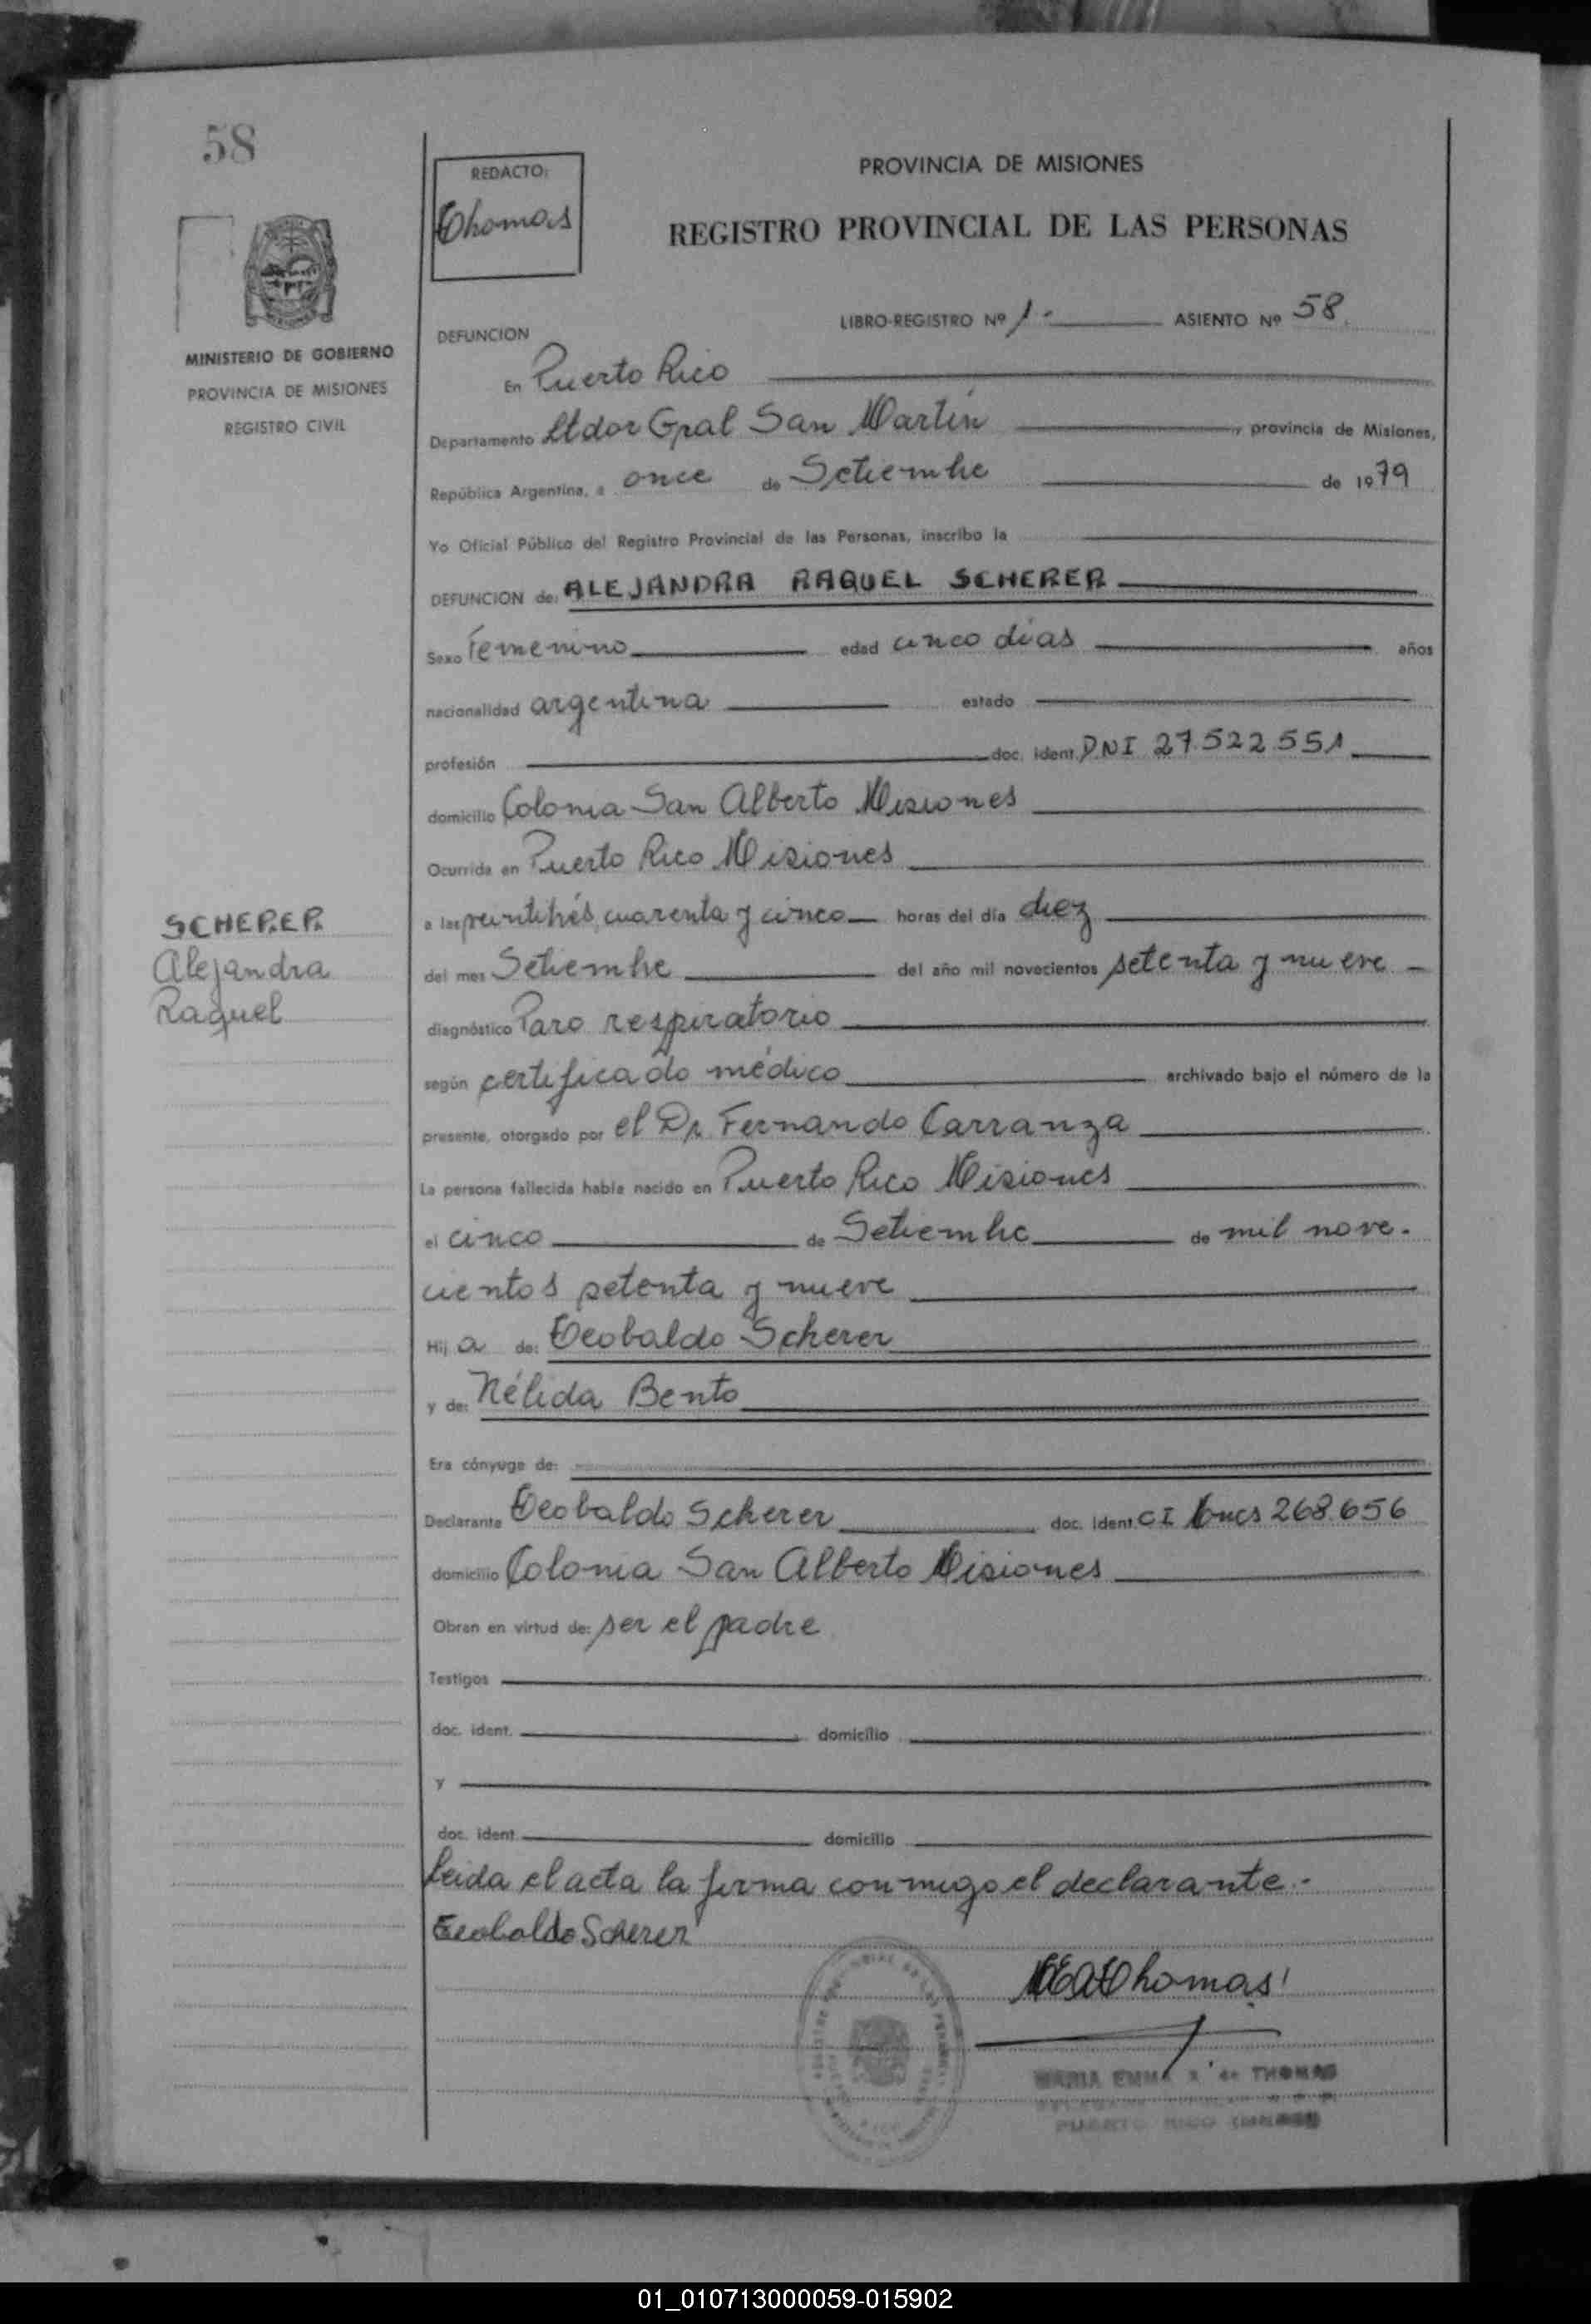 58
REDACTO:
Thomas
PROVINCIA DE MISIONES
REGISTRO PROVINCIAL DE LAS PERSONAS
MINISTERIO DE GOBIERNO
PROVINCIA DE MISIONES
REGISTRO CIVIL
LIBRO-REGISTRO Nº 1.- ASIENTO Nº 58.
DEFUNCION
En Puerto Rico
Departamento Ltdor Gral San Martín , provincia de Misiones,
República Argentina, a once de Setiembre de 1979
Yo Oficial Público del Registro Provincial de las Personas, inscribo la
DEFUNCION de: ALEJANDRA RAQUEL SCHERER
Sexo Femenino edad cinco días años
nacionalidad argentina estado
profesión doc. ident. DNI 27.522.551
domicilio Colonia San Alberto Misiones
Ocurrida en Puerto Rico Misiones
a las veintitrés, cuarenta y cinco horas del día diez
del mes Setiembre del año mil novecientos setenta y nueve
diagnóstico Paro respiratorio
según certificado médico archivado bajo el número de la
presente, otorgado por el Dr. Fernando Carranza
La persona fallecida había nacido en Puerto Rico Misiones
el cinco de Setiembre de mil nove-
cientos setenta y nueve
Hij a de: Teobaldo Scherer
y de: Nélida Bento
Era cónyuge de:
Declarante Teobaldo Scherer doc. ident. CI 268.656
domicilio Colonia San Alberto Misiones
Obran en virtud de: ser el padre
Testigos
doc. ident. domicilio
y
doc. ident. domicilio
Leida el acta la firma conmigo el declarante.-
Teobaldo Scherer
Thomas
MARIA EMMA de THOMAS
PUERTO RICO
SCHERER
Alejandra
Raquel
01_010713000059-015902